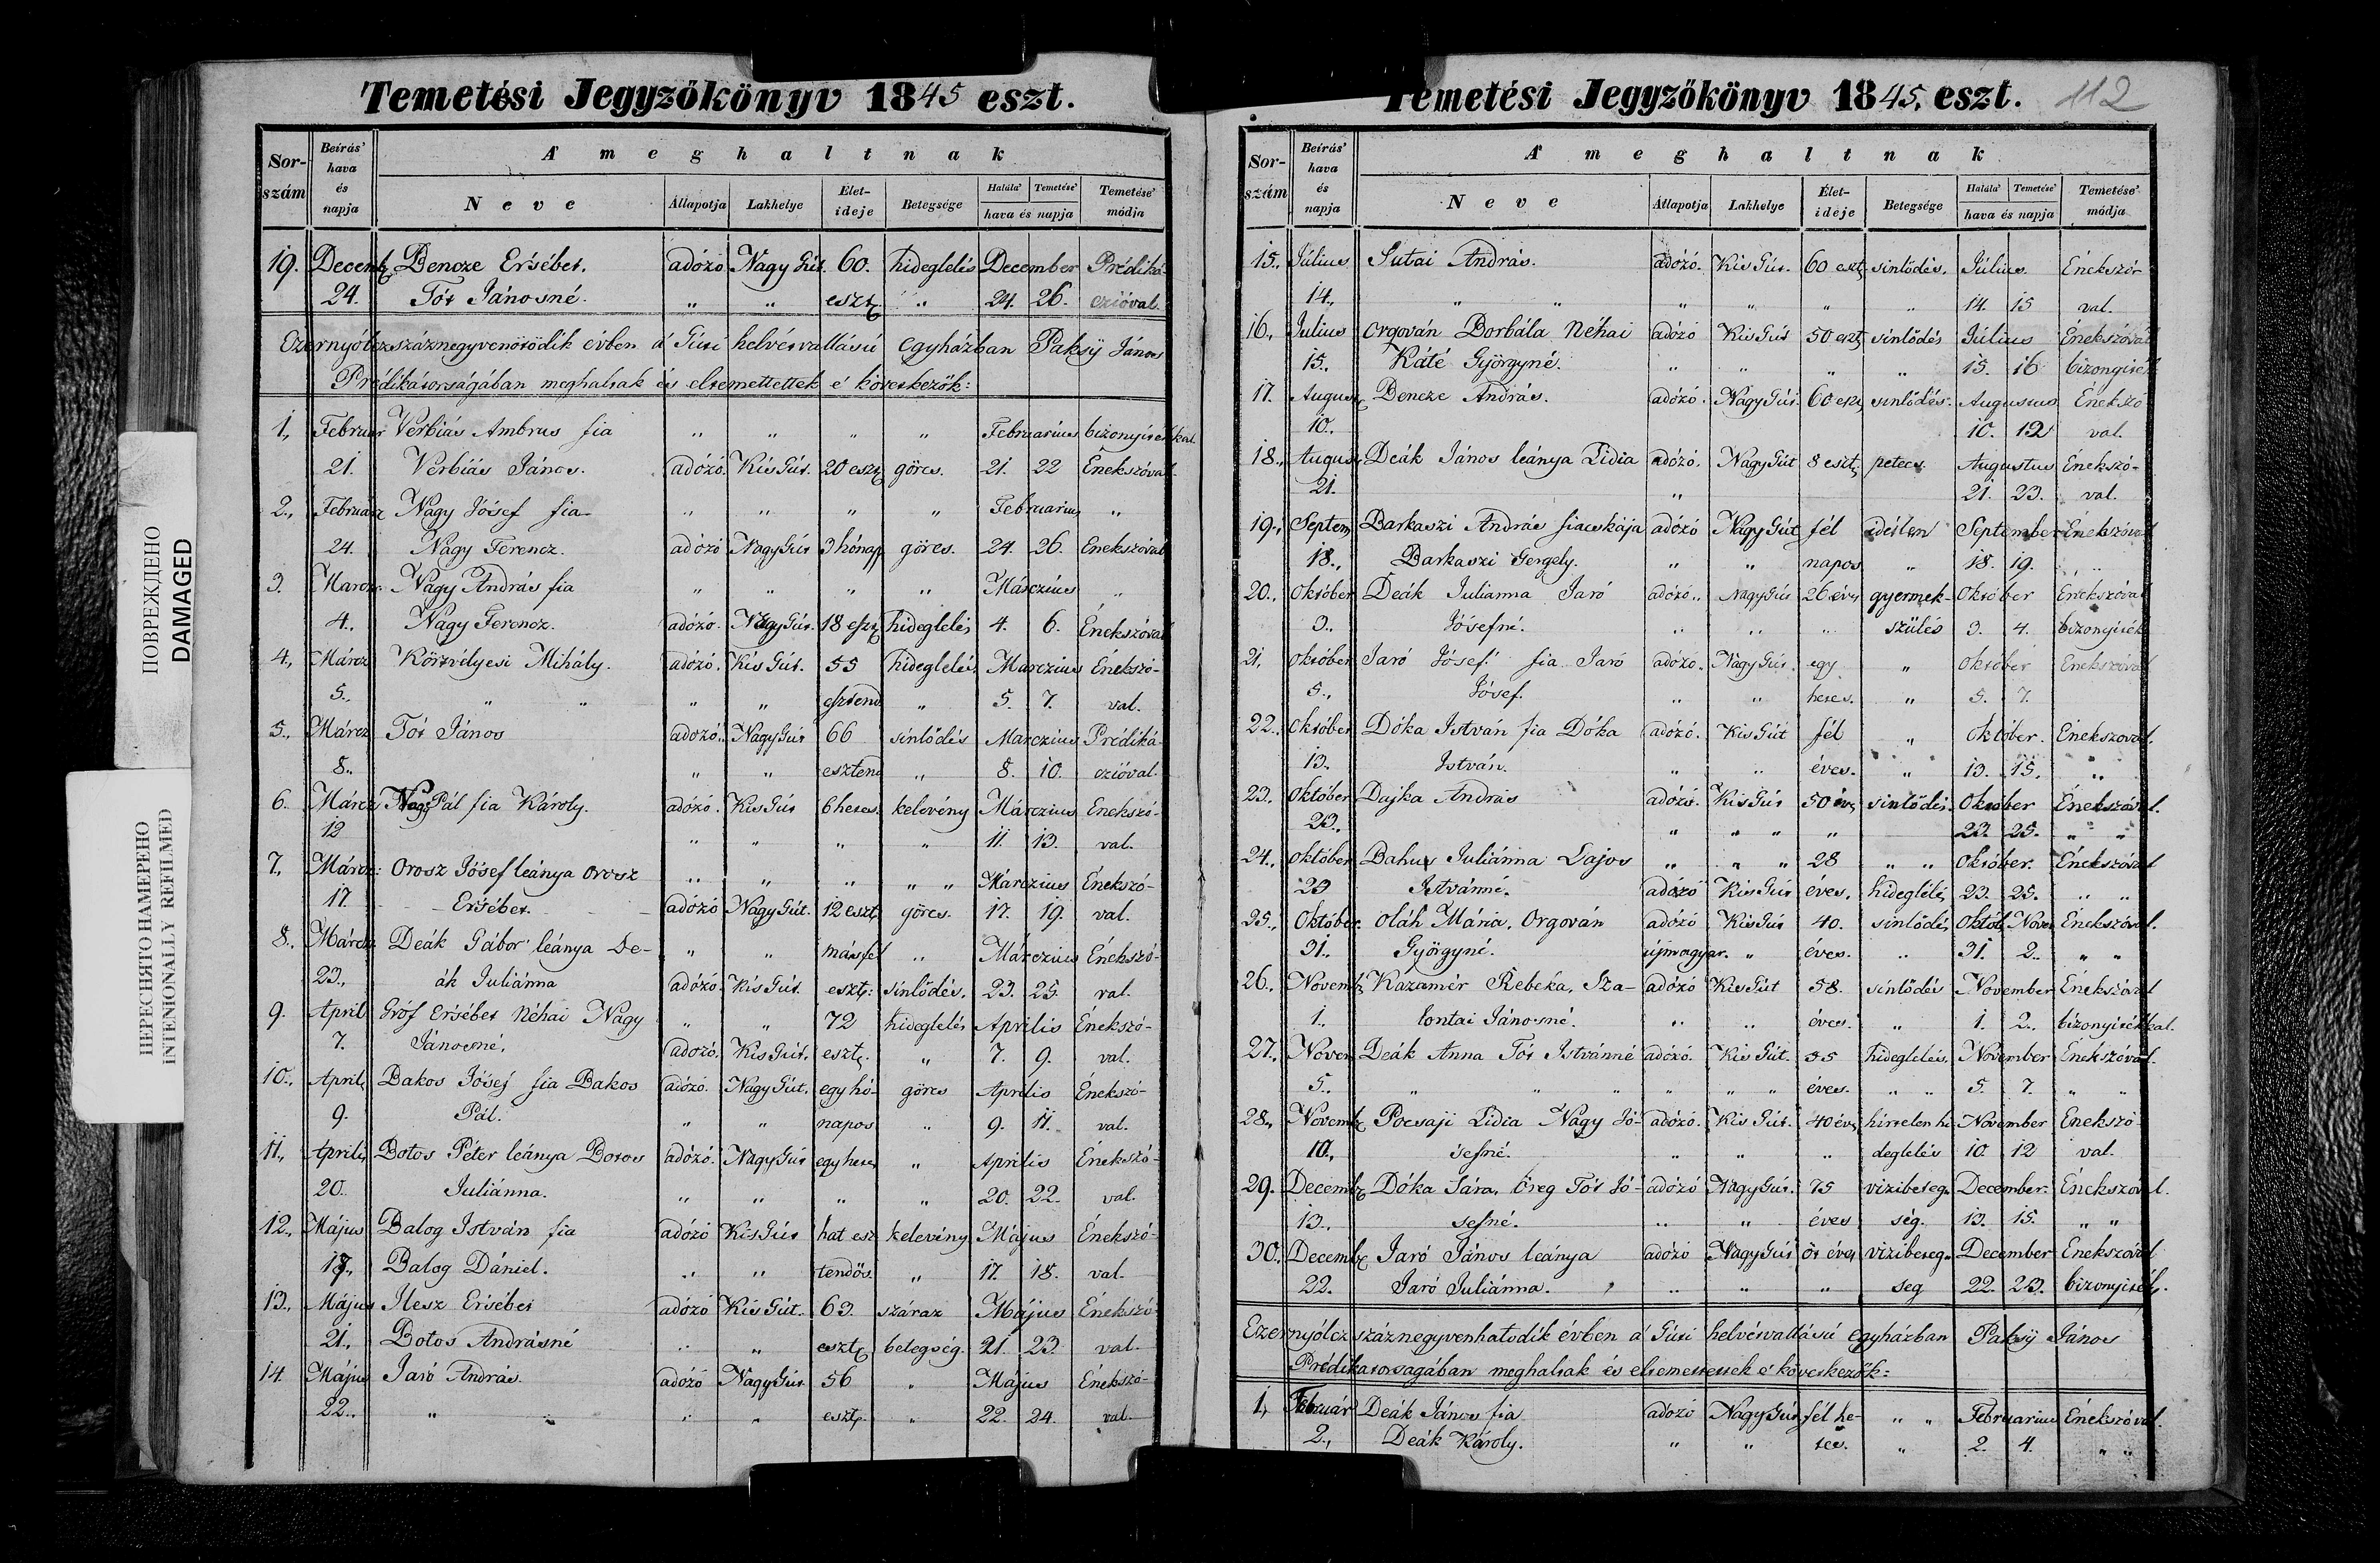 Temetési Jegyzőkönyv 1845 eszt.
Sor-szám Beírás' hava és napja A' meghaltnak
Neve Állapotja Lakhelye Élet-ideje Betegsége Halála' Temetése' hava és napja Temetése' módja
19. Decemb Bencze Ersébet. adózó Nagy Gút 60. hideglelés December Prédiká-
24. Tót Jánosné. " " eszt " 24. 26. czióval.
Ezernyólczszáznegyvenötödik évben a' Gúti helvétvallású egyházban Paksÿ János
Prédikátorságában meghaltak és eltemettettek e' következők:
1., Februar Verbiás Ambrus fia " " " " Februarius bizonyitékkal
21. Verbiás János. adózó. Kis Gút. 20 eszt görcs. 21. 22 Énekszóval.
2., Februar Nagy Jósef fia " " " " Februarius "
24. Nagy Ferencz. adózó Nagy Gút 3 hónap görcs. 24. 26. Énekszóval
3. Marcz. Nagy András fia " " " " Márczius "
4., Nagy Ferencz. adózó. Nagy Gút. 18 eszt hideglelés 4. 6. Énekszóval
4., Márcz Körtvélyesi Mihály. adózó. Kis Gút. 55 hideglelés Marczius Énekszó-
5., " " " " esztend " 5. 7. val.
5., Márcz Tót János adozó. Nagy Gút 66 sinlődés Marczius Prédiká-
8., " " eszten " 8. 10. czióval.
6. Márcz Nagy Pál fia Károly. adózó. Kis Gút 6 hetes. kelevény Márczius Énekszó-
12 " " " " 11. 13. val.
7, Márcz: Orosz Jósef leánya Orosz " " " " " Márczius Énekszó-
17. Ersébet. adózó Nagy Gút. 12 eszt görcs. 17. 19. val.
8., Márcz Deák Gábor leánya De- " " másfel " Márczius Énekszó-
23., ák Juliánna adózó. Kis Gút. eszt: sinlődés. 23. 25. val.
9. April Gróf Ersébet Néhai Nagy " " 72 hideglelés Aprilis Énekszó-
7. Jánosné. adozó. Kis Gút. eszt. " 7. 9. val.
10., April Bakos Jósef fia Bakos adózó. Nagy Gút. egy hó- görcs Aprilis Énekszó-
9. Pál. " " napos " 9. 11. val.
11., Aprilis Botos Péter leánya Botos adózó. Nagy Gút egy hetes " Aprilis Énekszó-
20. Juliánna. " " " " 20. 22. val.
12., Május Balog István fia adózó Kis Gút hat esz kelevény Május Énekszó-
17., Balog Dániel. " " tendös. " 17. 18. val.
13., Május Ilesz Ersébet adózó Kis Gút. 63. száraz Május Énekszó-
21., Botos Andrásné " " eszt betegség. 21. 23. val.
14. Május Jaró András. adózó Nagy Gút. 56 " Május Énekszó-
22., " " " " eszt. " 22. 24. val.
Temetési Jegyzőkönyv 1845. eszt. 112
Sor-szám Beírás' hava és napja A' meghaltnak
Neve Állapotja Lakhelye Élet-ideje Betegsége Halála' Temetése' hava és napja Temetése' módja
15., Július Sutai András. adózó. Kis Gút. 60 eszt sinlődés. Július Énekszó-
14., " " " " " " 14. 15 val.
16., Julius Orgován Borbála Néhai adózó Kis Gút 50 eszt sinlődés Július Énekszóval
15., Káté Györgyné. " " " " 15. 16 bizonyiték
17. August Bencze András. adózó. Nagy Gút. 60 esz sinlődés. Augustus Énekszó
10., 10. 12 val.
18., August Deák János leánya Lidia adózó. Nagy Gút 8 eszt. petecs. Augustus Énekszó-
21. " 21. 23. val.
19., Septem Barkaszi András fiacskája adózó Nagy Gút fél idétlen September Énekszóval
18., Barkaszi Gergely. " " napos " 18. 19. " "
20., Október Deák Julianna Jaró adózó. Nagy Gút 26 éves gyermek- Október Énekszóval
3., Jósefné. " " " szülés 3. 4. bizonyiték
21. október Jaró Jósef fia Jaró adózó. Nagy Gút. egy " október Énekszóval
5., Jósef. " " hetes. " 5. 7.
22., Október Dóka István fia Dóka adózó. Kis Gút fél " október. Énekszoval.
13., István. " " éves. " 13. 15. "
23. Október Dajka András adózó. Kis Gút 50 éves sinlődés. Október Énekszóval.
23., " " " " 23. 25. " "
24., Október Bahus Juliánna Lajos " " " 28 " " október. Énekszóval
23 Istvánné. adózó Kis Gút éves. hideglélés 23. 25. " "
25., Október. Oláh Mária. Orgován adózó Kis Gút 40. sinlődés Októb Nove Énekszóval.
31., Györgyné. újmagyar. " éves. " 31. 2. " "
26., Novemb Kazamér Rebeka, Sza- adózó Kis Gút 58. sinlődés November Énekszóval
1., lontai Jánosné. " " éves. " 1. 2., bizonyitékkal.
27., Novem Deák Anna Tót Istvánné adózó. Kis Gút. 35 hideglelés. November Énekszóval.
5., " " " " " " éves. " " 5. 7. " "
28., Novemb Pocsaji Lidia Nagy Jó- adózó. Kis Gút. 40 éves hirtelen hi November Énekszó-
10., sefné. " " " deglelés 10. 12 val.
29. Decemb Dóka Sára. Öreg Tót Jó- adózó Nagy Gút. 75 vizibeteg- December. Énekszóval.
13., sefné. " " éves ség. 13. 15. " "
30., Decemb Jaró János leánya adózó Nagy Gút öt éves vizibeteg- December Énekszóval
22. Jaró Juliánna. " " " seg 22. 23. bizonyiték.
Ezernyólczszáznegyvenhatodik évben a' Gúti helvétvallású egyházban Paksÿ János
Prédikatorsagában meghaltak és eltemettettek e' következők:
1, Február Deák János fia adózó Nagy Gút fél he- " " Februarius Énekszóval.
2., Deák Károly. " " tes. " 2. 4. " "
ПОВРЕЖДЕНО
DAMAGED
ПЕРЕСНЯТО НАМЕРЕНО
INTENIONALLY REFILMED